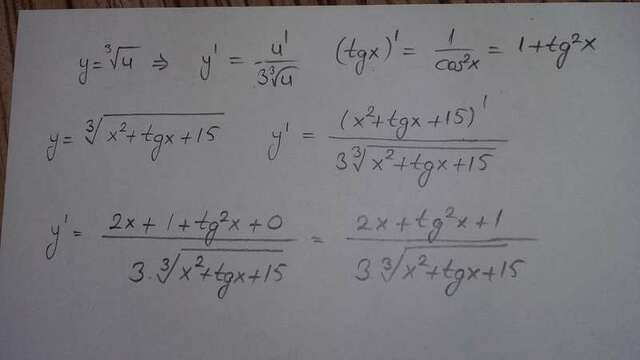 y=∛u ⇒ y' = u'/(3∛u) (tgx)' = 1/cos²x = 1+tg²x
y= ∛(x²+tgx+15) y' = (x²+tgx+15)'/(3∛(x²+tgx+15))
y' = (2x+1+tg²x+0)/(3·∛(x²+tgx+15)) = (2x+tg²x+1)/(3·∛(x²+tgx+15))